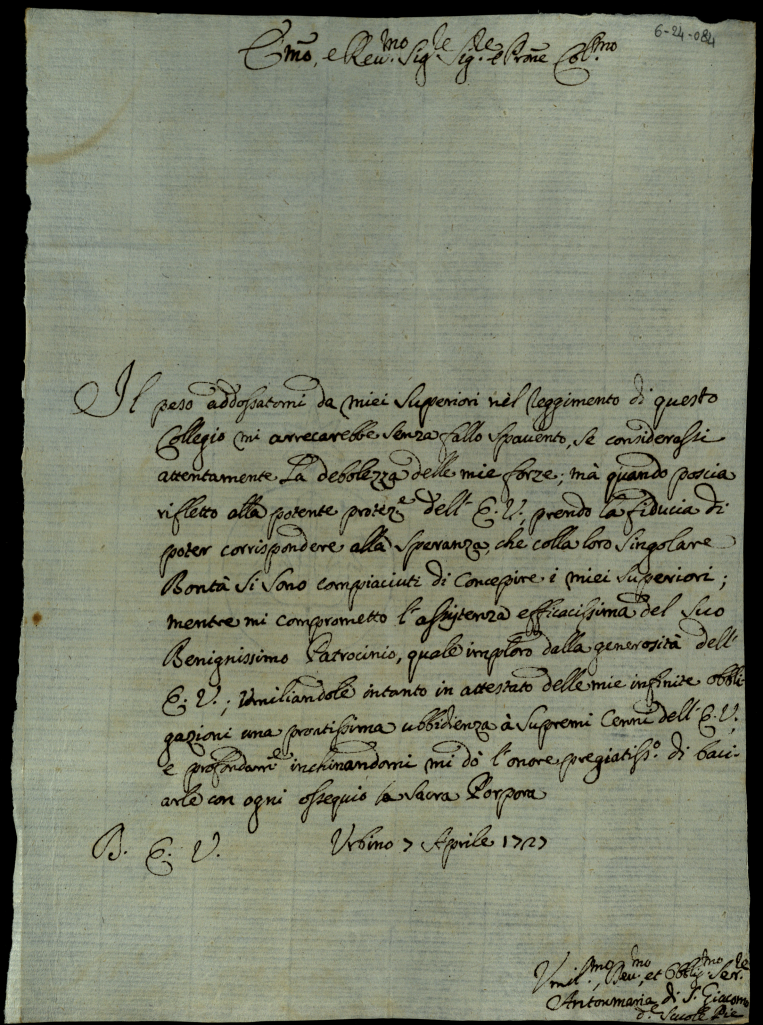 6-24-084
Em̃o, e Reu.mo Sig.re Sig.re e Prõne Col.mo
Il peso addossatomi da miei Superiori nel Reggimento di questo
Collegio mi arrecarebbe senza fallo spavento, se considerassi
attentamente La debolezza delle mie forze; mà quando poscia
rifletto alla potente protez.e dell' E. V., prendo la fiducia di
poter corrispondere alla speranza, che colla loro singolare
Bontà si sono compiaciuti di concepire i miei Superiori;
mentre mi comprometto l'assistenza efficacissima del Suo
Benignissimo Patrocinio, quale imploro dalla generosità dell'
E. V.; Umiliandole intanto in attestato delle mie infinite obbli-
gazioni una prontissima ubbidienza à supremi Cenni dell' E. V.,
e profondam.e inchinandomi mi dò l'onore pregiatiss.o di baci-
arle con ogni ossequio la Sacra Porpora
B. E. V. Urbino 7 Aprile 1727
Umil.mo, Deu.mo, et Obblig.mo Ser.re
Antonmaria di S. Giacomo
d.e Scuole Pie